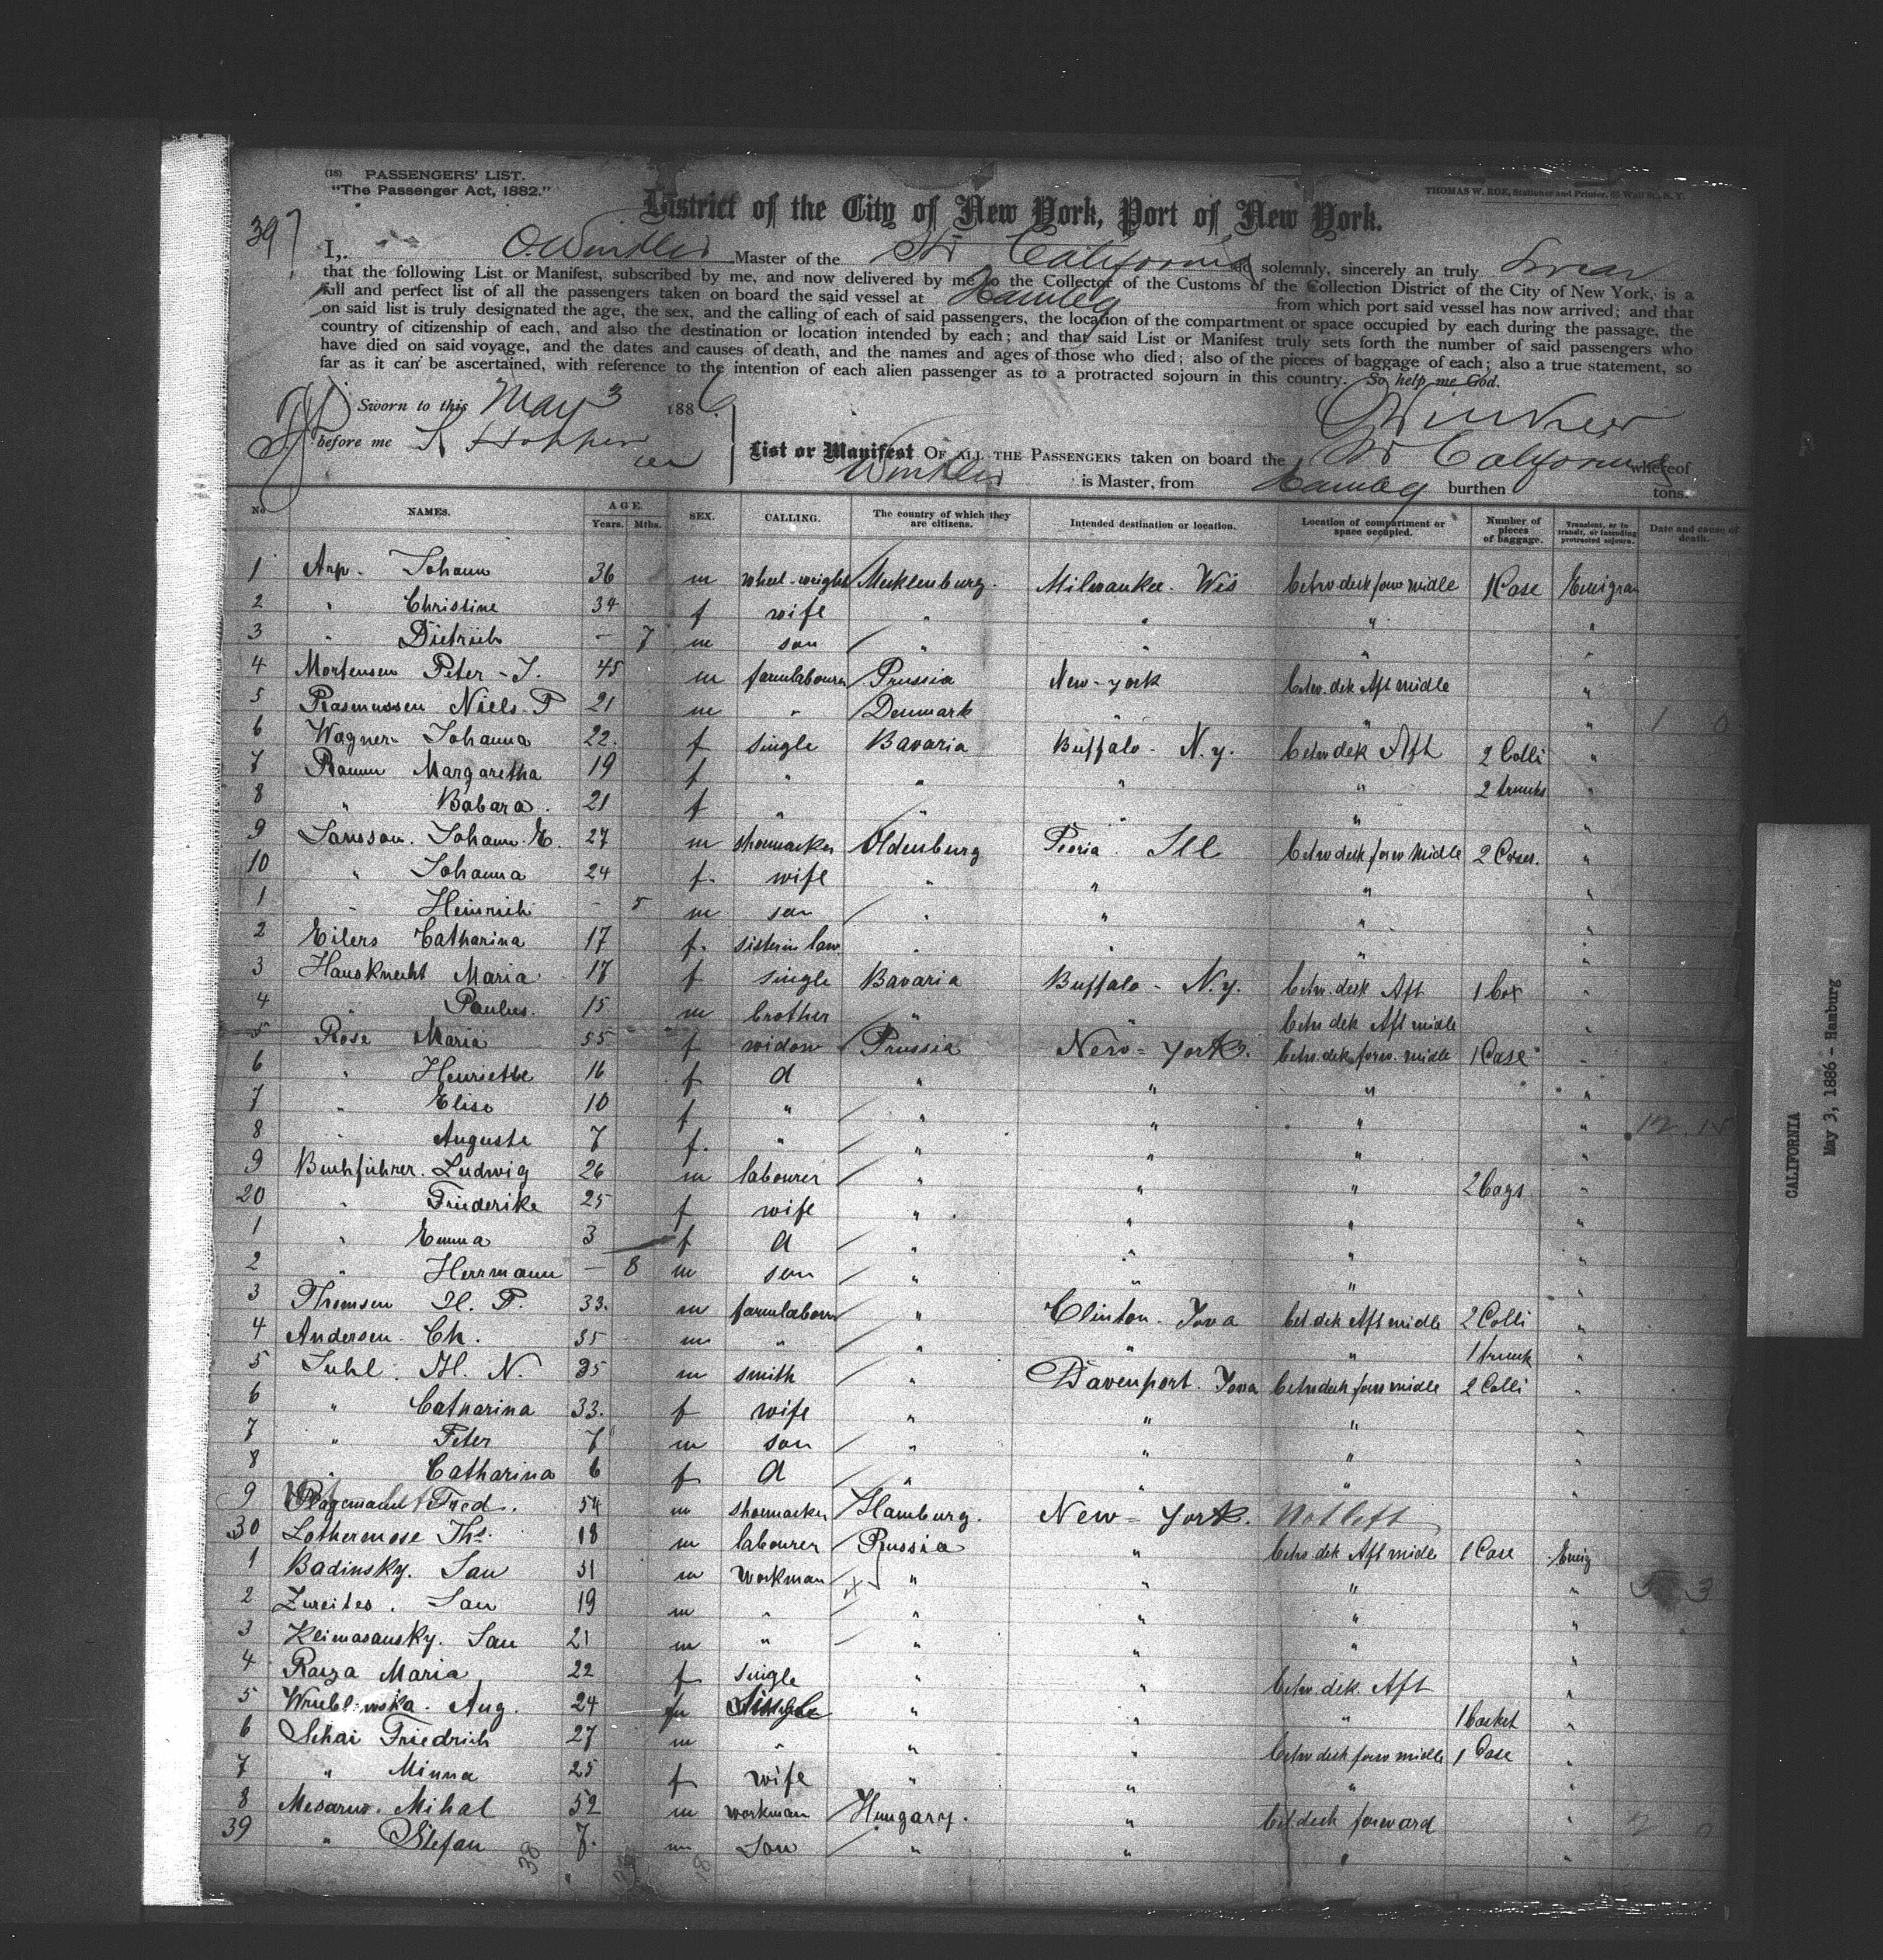 (18) PASSENGERS' LIST.
"The Passenger Act, 1882."
THOMAS W. ROE, Stationer and Printer, 65 Wall St., N. Y.
District of the City of New York, Port of New York.
397
I, O. Winkler Master of the Str California do solemnly, sincerely an truly Swear
that the following List or Manifest, subscribed by me, and now delivered by me to the Collector of the Customs of the Collection District of the City of New York, is a
full and perfect list of all the passengers taken on board the said vessel at Hamburg from which port said vessel has now arrived; and that
on said list is truly designated the age, the sex, and the calling of each of said passengers, the location of the compartment or space occupied by each during the passage, the
country of citizenship of each, and also the destination or location intended by each; and that said List or Manifest truly sets forth the number of said passengers who
have died on said voyage, and the dates and causes of death, and the names and ages of those who died; also of the pieces of baggage of each; also a true statement, so
far as it can be ascertained, with reference to the intention of each alien passenger as to a protracted sojourn in this country. So help me God.
Sworn to this May 3 1886
before me
O Winkler
List or Manifest OF ALL THE PASSENGERS taken on board the Str California whereof
Winkler is Master, from Hamburg burthen tons.
No NAMES. AGE. Years. Mths. SEX. CALLING. The country of which they are citizens. Intended destination or location. Location of compartment or space occupied. Number of pieces of baggage. Transient, or in transit, or intending protracted sojourn. Date and cause of death.
1 Arp. Johann 36 m wheel-wright Mecklenburg. Milwaukee. Wis betw deck forw midle 1 Case Emigran
2 " Christine 34 f wife " " " "
3 " Dietrich - 7 m son " " " "
4 Mortensen Peter-J. 45 m farmlabourer Prussia New-york betw. dek Aft midle "
5 Rasmussen Niels P 21 m " Denmark " " " 1 0
6 Wagner Johanna 22. f single Bavaria Buffalo - N.y. betw dek Aft 2 Colli "
7 Raum Margaretha 19 f " " " " 2 trunks "
8 " Babara. 21 f " " " " "
9 Jansson. Johann. E. 27 m shoemacker Oldenburg Peoria. Ill betw deck forw midle 2 Cases. "
10 " Johanna 24 f. wife " " " "
1 " Heinrich - 5 m son " " " "
2 Eilers Catharina 17 f. sister in law " " " "
3 Hausknecht Maria 17 f single Bavaria Buffalo - N.y. betw. deck Aft 1 box "
4 " Paulus. 15 m brother " " betw dek Aft midle "
5 Rose Maria 55 f widow Prussia New-york. betw. dek forw. midle 1 Case "
6 " Henriette 16 f d " " " "
7 " Elise 10 f " " " " "
8 " Auguste 7 f. " " " " " 12. 15
9 Buchführer. Ludwig 26 m labourer " " " 2 bags "
20 " Friederike 25 f wife " " " "
1 " Emma 3 f d " " " "
2 " Herrmann - 8 m son " " " "
3 Thomsen H. P. 33. m farmlabourer " Clinton. Jova bet dek Aft midle 2 Colli "
4 Andersen. Ch. 35 m " " " " 1 trunk "
5 Juhl. H. N. 35 m smith " Davenport. Jova betw deck forw midle 2 Colli "
6 " Catharina 33. f wife " " " "
7 " Peter 7 m son " " " "
8 " Catharina 6 f d " " " "
9 Plagemann Fred. 54 m shoemacker Hamburg. New-york. Not left
30 Lothermose Ths. 18 m labourer Prussia " betw dek Aft midle 1 Case Emig
1 Badinsky. Jan 31 m workman " " " " 5 3
2 Zureites. Jan 19 m " " " " "
3 Klimasausky. Jan 21 m " " " " "
4 Raiza Maria 22 f single " " betw. dek. Aft "
5 Wrublewska. Aug. 24 Single " " " 1 basket "
6 Schai Friedrich 27 m " " " betw deck forw midle 1 Case "
7 " Minna 25 f wife " " " "
8 Mesarus. Mihal 52 m workman Hungary. " bet. deck forward " 2 0
39 " Stefan 7. m son " " " "
38 18
CALIFORNIA
May 3, 1886 - Hamburg